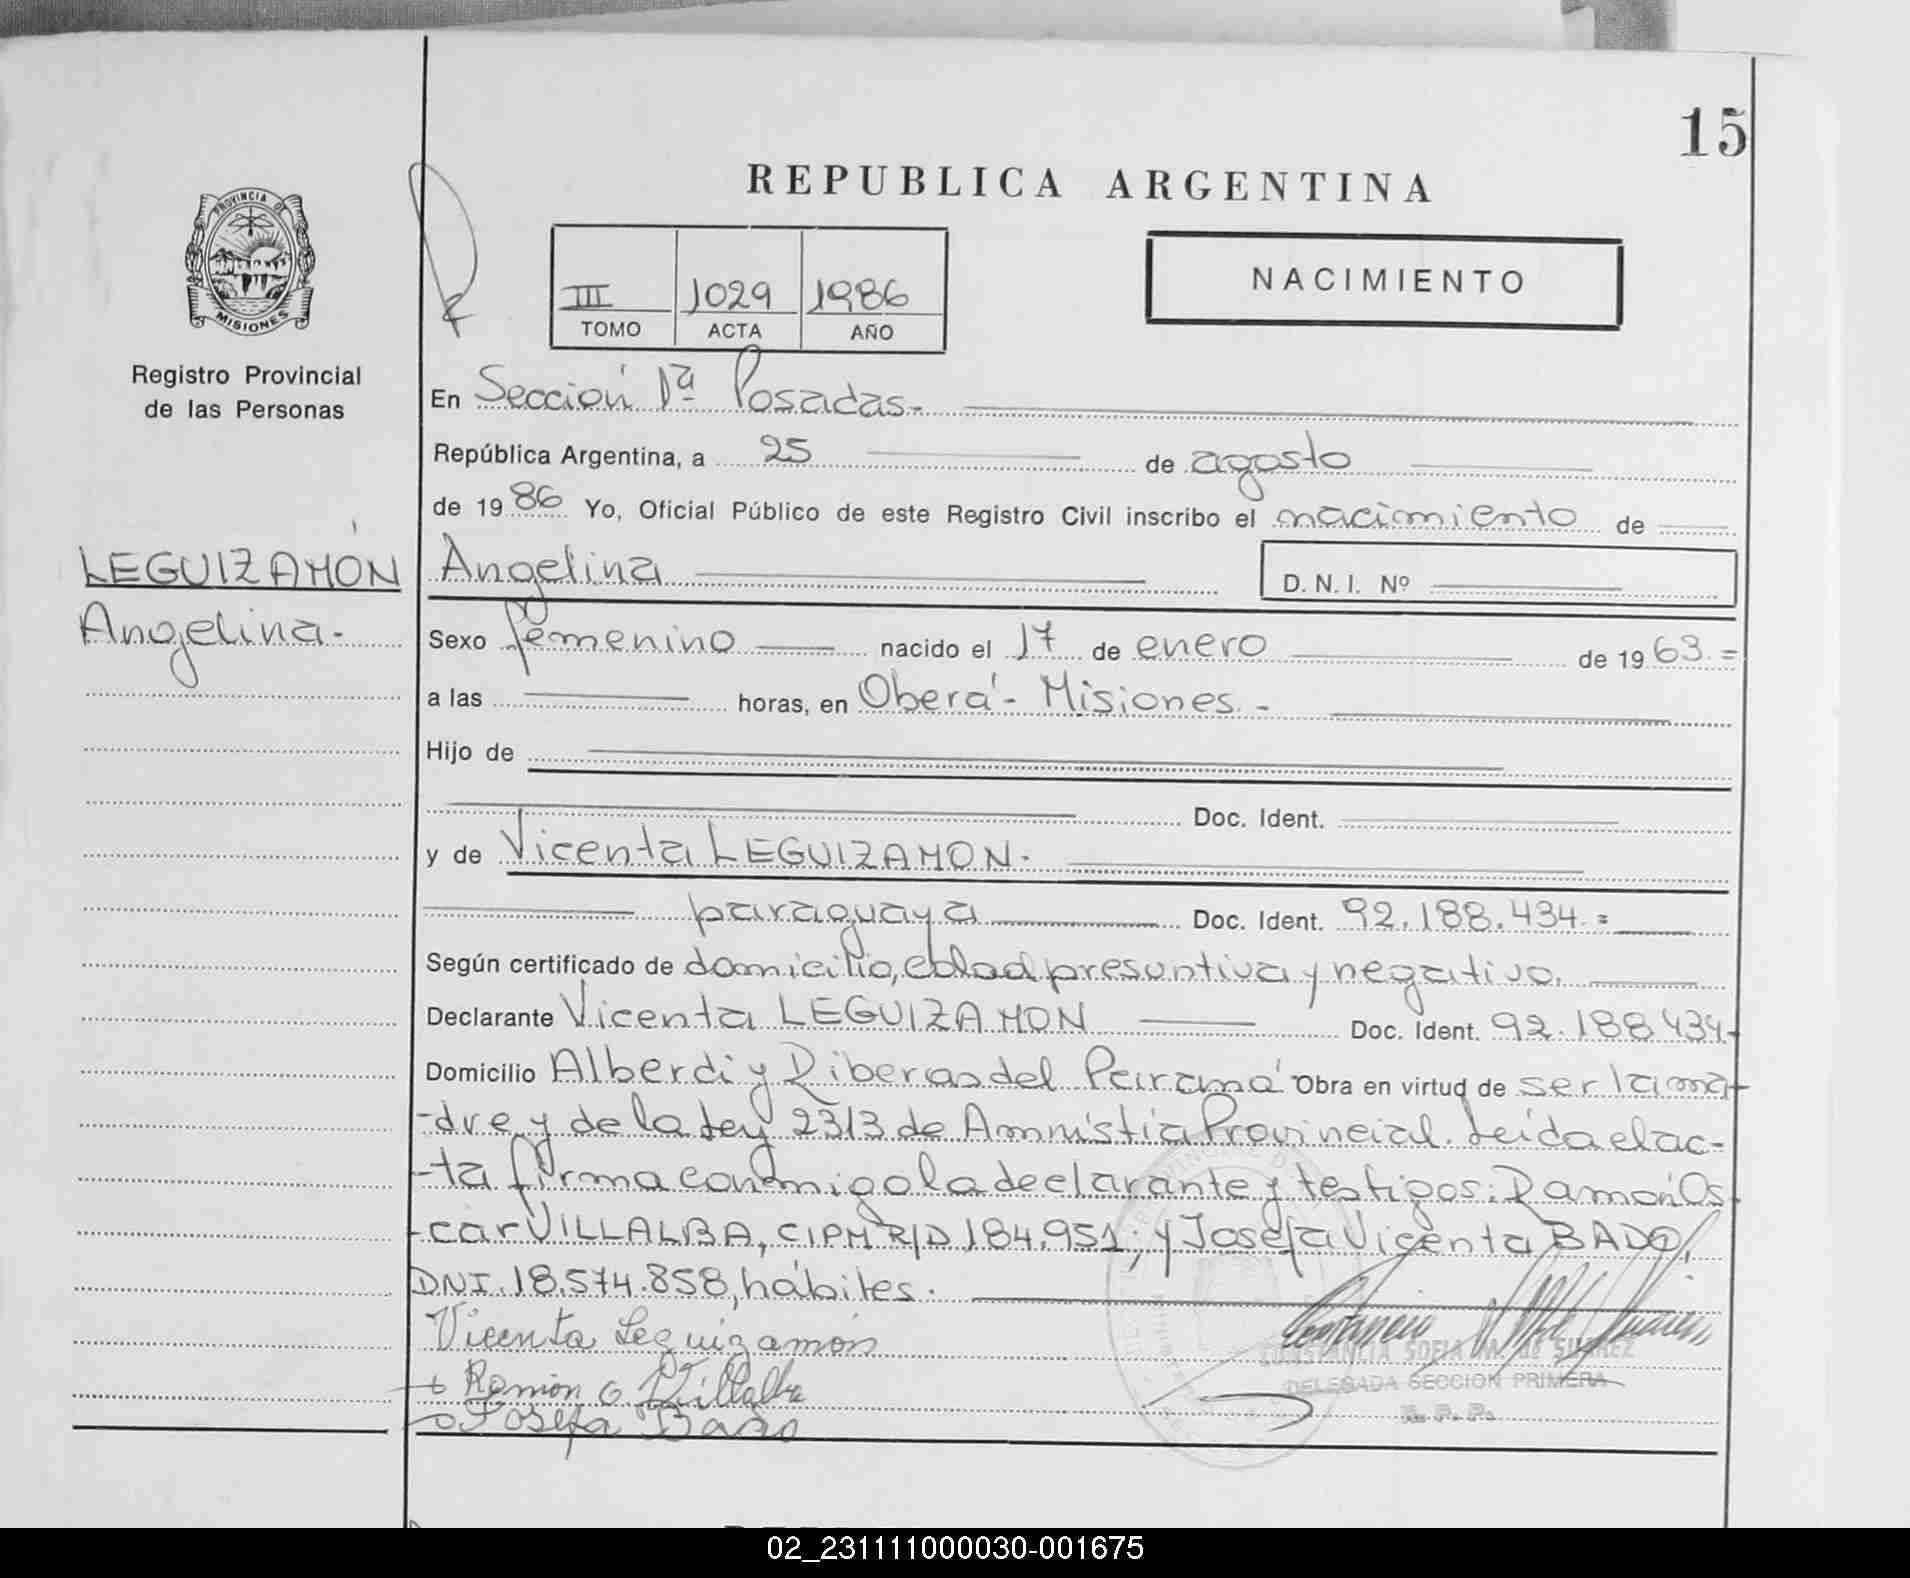 15
REPUBLICA ARGENTINA
PROVINCIA DE
MISIONES
Registro Provincial
de las Personas
III 1029 1986
TOMO ACTA AÑO
NACIMIENTO
En Sección 1ª Posadas.
República Argentina, a 25 de agosto
de 1986 Yo, Oficial Público de este Registro Civil inscribo el nacimiento de
LEGUIZAMÓN
Angelina.
Angelina D.N.I. Nº
Sexo femenino nacido el 17 de enero de 1963.=
a las horas, en Oberá - Misiones. -
Hijo de
Doc. Ident.
y de Vicenta LEGUIZAMON.
paraguaya Doc. Ident. 92.188.434.=
Según certificado de domicilio, edad presuntiva y negativo.
Declarante Vicenta LEGUIZAMON Doc. Ident. 92.188.434-
Domicilio Alberdi y Riberas del Paraná Obra en virtud de ser la ma-
-dre y de la Ley 2313 de Amnistía Provincial. Leída el ac-
-ta firma conmigo la declarante y testigos: Ramón Os-
-car VILLALBA, CIPM R/D 184.951; y Josefa Vicenta BADO,
DNI. 18.574.858, hábiles.
Vicenta Leguizamón
Ramón O. Villalba
Josefa Bado
CONSTANCIA SOFIA M. de SUAREZ
DELEGADA SECCION PRIMERA
R. P. P.
02_231111000030-001675